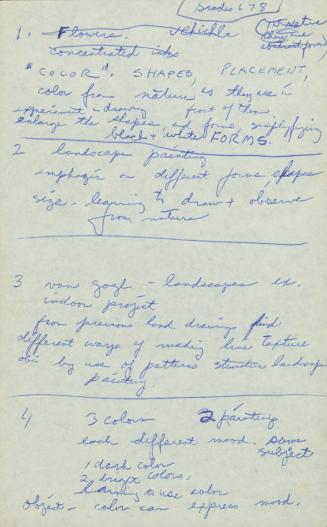 Grades 6 7 8
1. Flowers. vehichle
concentrated inks
"COLOR". SHAPES, PLACEMENT,
color from nature as they are in
experiment - drawing front of them
enlarge the shapes and forms, simplifying
black + white FORMS.
2 landscape painting
emphasis on different forms shapes
size. learning to draw + observe
from nature
3 van gogh - landscapes ex.
indoor project
from previous land. drawing find
different ways of making line texture
obj: by use of patterns structure landscape
painting
4 3 colors 2 painting
each different mood. same
subject
1 dark color
2 bright colors.
learning to use color
object - color can express mood.